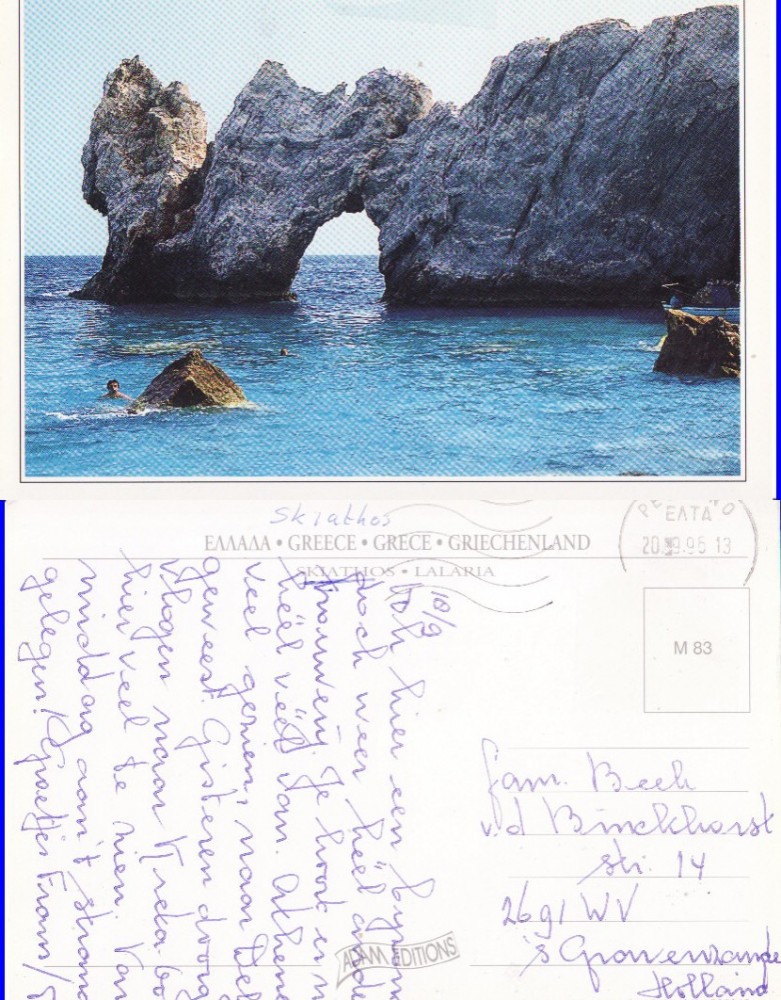 Skiathos
ΕΛΛΑΔΑ • GREECE • GRECE • GRIECHENLAND
SKIATHOS • LALARIA
ΕΛΤΑ
20 9.96 13
M 83
10/9
hier een
toch weer heel
Je hoort er
heel veel van. Athene
veel gezien, naar Del
geweest. Gisteren doorg
vlogen naar Kreta oo
hier veel te zien. Van
middag aan't strand
gelegen! Groetjes Frans/
fam. Beek
v.d Binckhorst
str. 14
2691 WV
's Gravenzande
Holland
ADAM EDITIONS